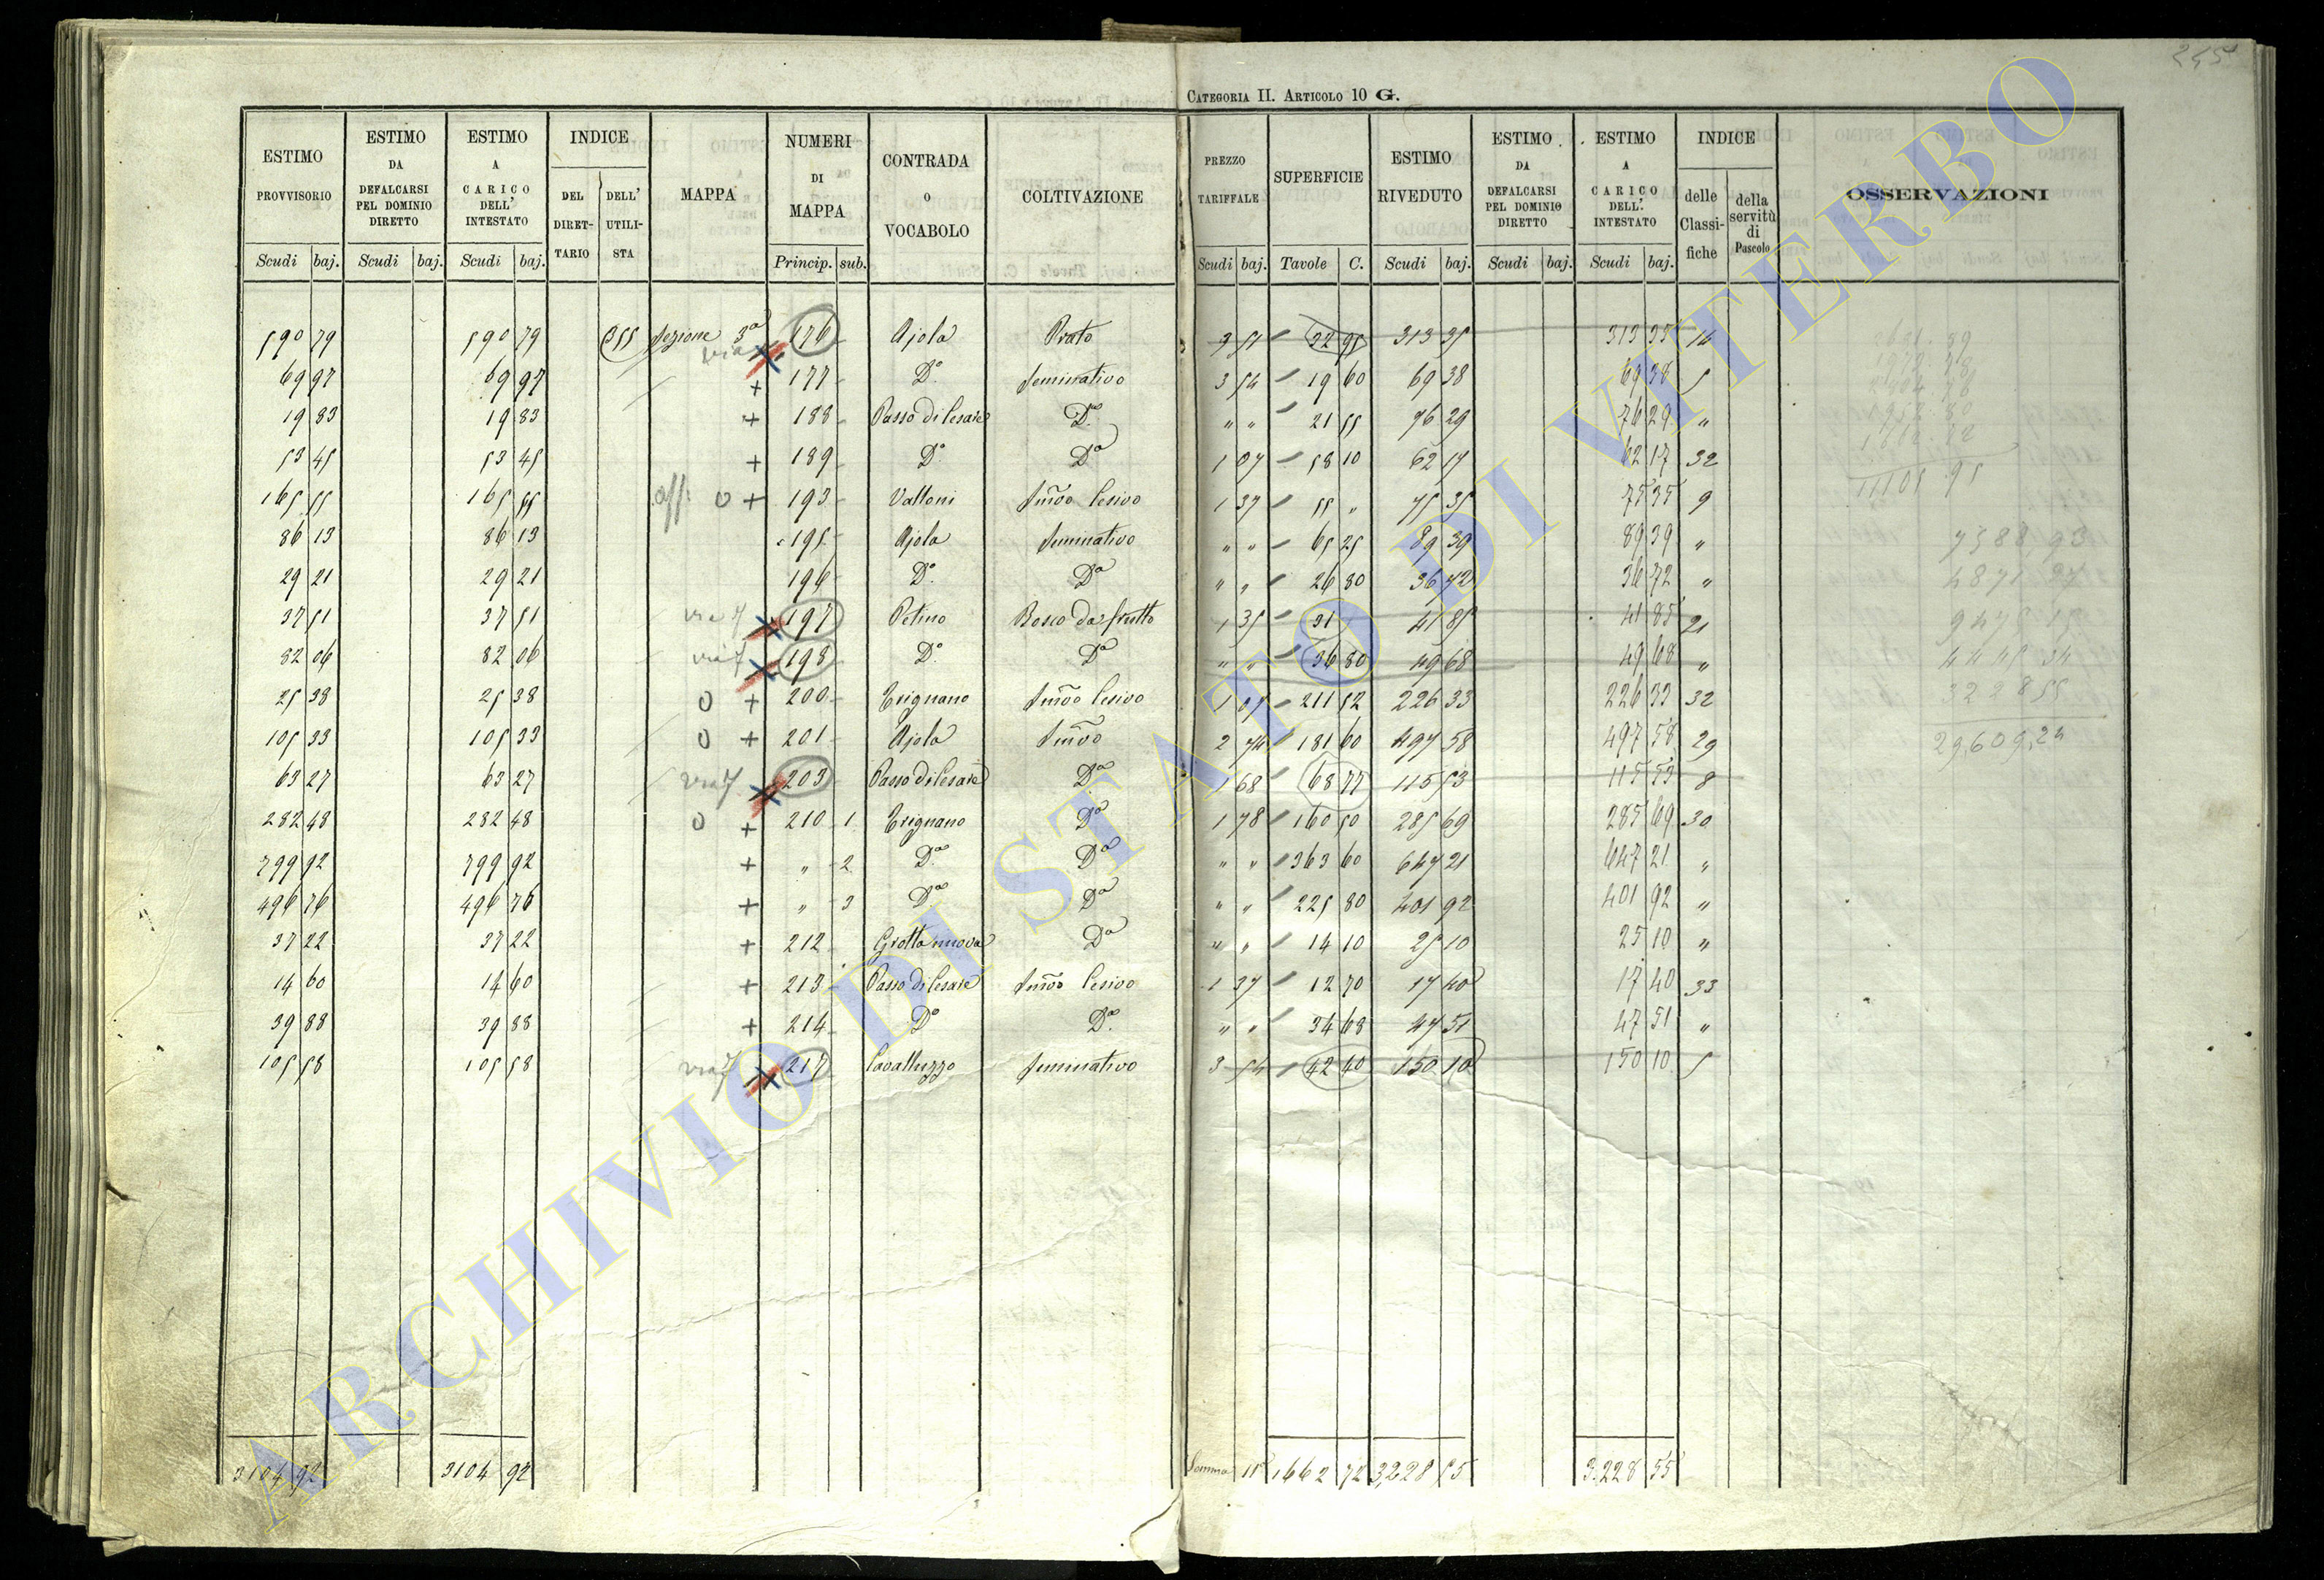 245
CATEGORIA II. ARTICOLO 10 G.
ESTIMO PROVVISORIO | ESTIMO DA DEFALCARSI PEL DOMINIO DIRETTO | ESTIMO A CARICO DELL' INTESTATO | INDICE DEL DIRETTARIO | DELL' UTILISTA | MAPPA | NUMERI DI MAPPA | CONTRADA o VOCABOLO | COLTIVAZIONE | PREZZO TARIFFALE | SUPERFICIE | ESTIMO RIVEDUTO | ESTIMO DA DEFALCARSI PEL DOMINIO DIRETTO | ESTIMO A CARICO DELL' INTESTATO | INDICE delle Classifiche | della servitù di Pascolo | OSSERVAZIONI
Scudi baj. | Scudi baj. | Scudi baj. | Princip. sub. | Scudi baj. | Tavole C. | Scudi baj. | Scudi baj. | Scudi baj.
590 79 590 79 355 Sezione 3a 176 Ajola Prato 313 35 313 35 14
69 97 69 97 + 177 Do. Seminativo 3 54 19 60 69 38 69 38 5
19 83 19 83 + 188 Passo di Cesare Do. " " 21 55 76 29 76 29 "
53 45 53 45 + 189 Do Do 1 07 58 10 62 17 62 17 32
165 55 165 55 0 + 193 Valloni Smvo Cesivo 1 37 55 " 75 35 75 35 9
86 13 86 13 195 Ajola Seminativo " " 65 25 89 39 89 39 "
29 21 29 21 196 Do. Do " " 26 80 36 72 36 72 "
37 51 37 51 via 7 197 Petino Bosco da frutto 1 35 31 41 85 41 85 21
82 06 82 06 via 7 198 Do. Do " " 36 80 49 68 49 68 "
25 38 25 38 0 + 200 Erignano Smvo Cesivo 1 07 211 52 226 33 226 33 32
105 33 105 33 0 + 201 Ajola Smvo 2 74 181 60 497 58 497 58 29
63 27 63 27 via 7 203 Passo di Cesare Do 1 68 68 77 115 53 115 53 8
282 48 282 48 0 + 210 1 Erignano Do 1 78 160 50 285 69 285 69 30
799 92 799 92 + " 2 Do. Do " " 363 60 647 21 647 21 "
496 76 496 76 + " 3 Do Do " " 225 80 401 92 401 92 "
37 22 37 22 + 212 Grotta nuova Do " " 14 10 25 10 25 10 "
14 60 14 60 + 213 Passo di Cesare Smvo Cesivo 1 37 12 70 17 40 17 40 33
39 88 39 88 + 214 Do Do. " " 34 68 47 51 47 51 "
105 58 105 58 via 7 217 Cavalluzzo Seminativo 3 54 42 40 150 10 150 10 5
3104 92 3104 92 Somma 1662 72 3,228 55 3.228 55
7588,93
4871,97
9475 15
4445 34
3228 55
29,609,24
ARCHIVIO DI STATO DI VITERBO